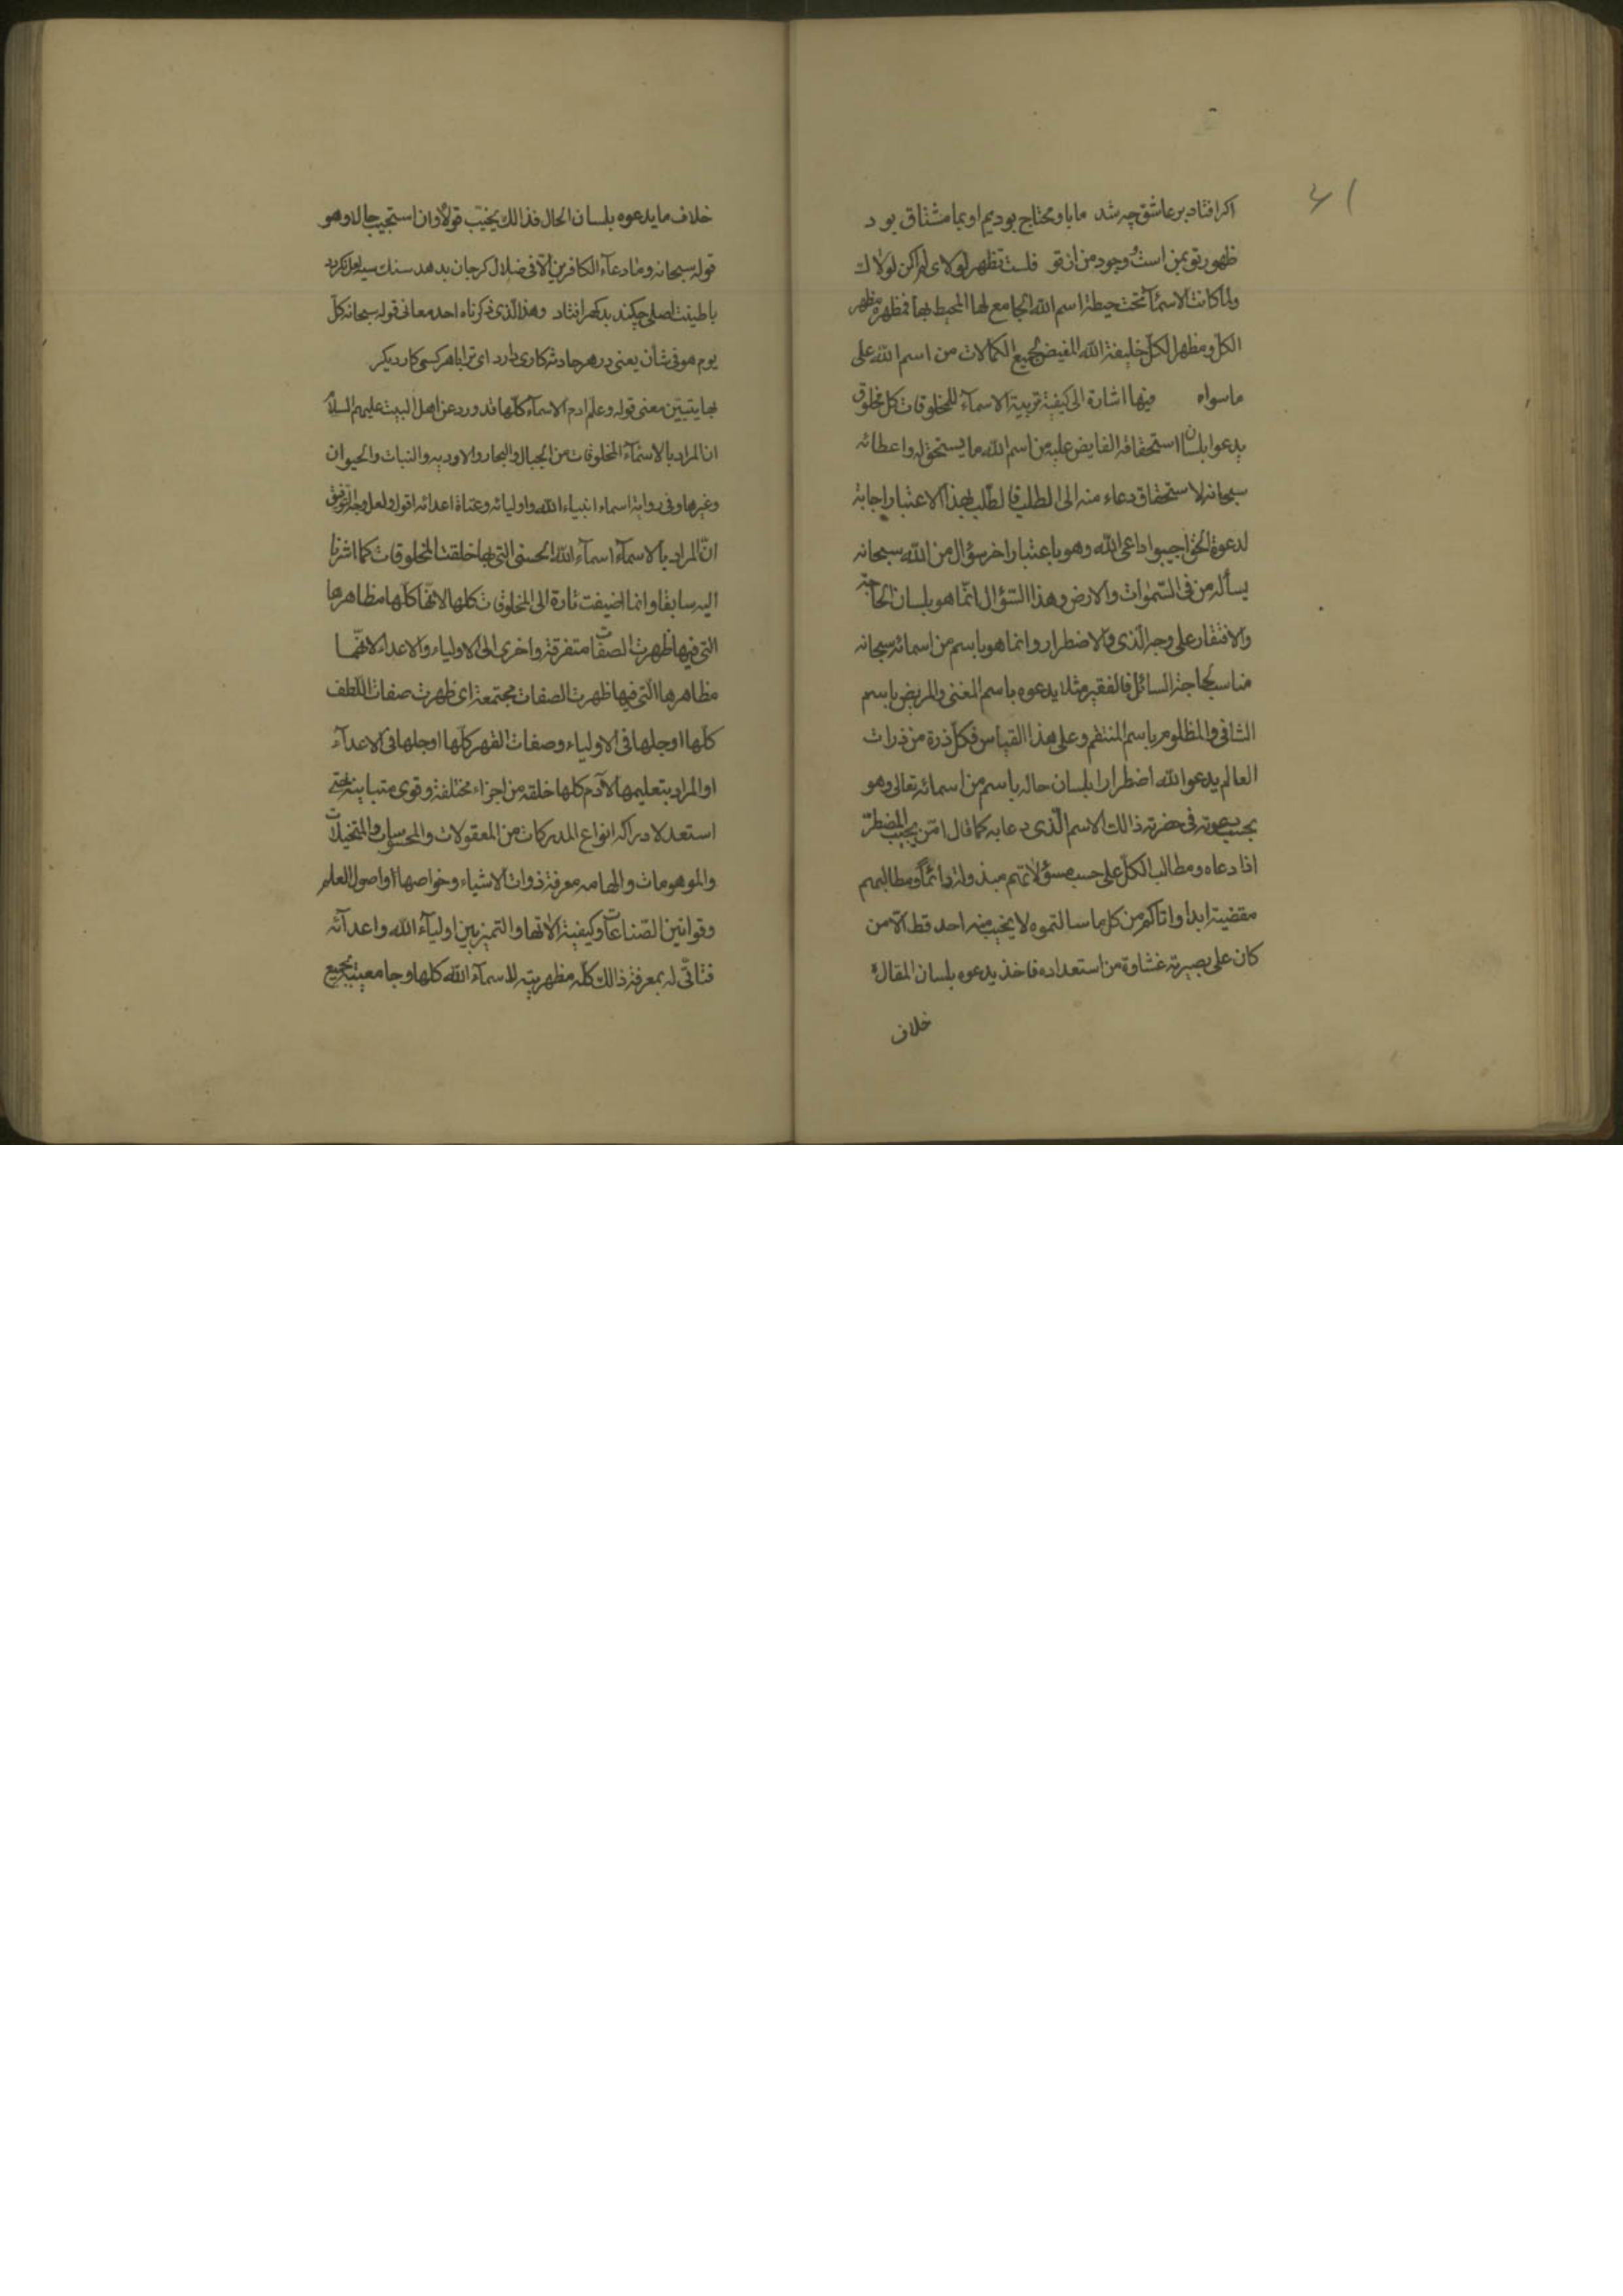 ۴۱
اكر افتاد بر عاشق چه شد ما باو محتاج بوديم او بما مشتاق بود
ظهور تو بمن است وجود من از تو فلست تظهر لولاى لم اكن لولاك
ولما كانت الاسمآء تحت حيطة اسم الله الجامع لها المحيط بها فمظهره مظهر
الكل ومظهر الكل خليفة الله المفيض لجميع الكمالات من اسم الله على
ماسواه فيها اشارة الى كيفية تربية الاسمآء للمخلوقات كل مخلوق
يدعوا بلسان استحقاقه الفايض عليه من اسم الله ما يستحق له واعطائه
سبحانه لاستحقاق دعاء منه الى الطلب فالطلب بهذا الاعتبار اجابة
لدعوة الحق اجيبوا داعى الله وهو باعتبار اخر سؤال من الله سبحانه
يسأله من فى السموات والارض وهذا السؤال انما هو بلسان الحاجة
والافتقار على وجه الذى والاضطرار وانما هو باسم من اسمائه سبحانه
مناسب لحاجة السائل فالفقير مثلا يدعوه باسم المغنى والمريض باسم
الشافى والمظلوم باسم المنتقم وعلى هذا القياس فكل ذرة من ذرات
العالم يدعو الله اضطرارا بلسان حاله باسم من اسمائه تعالى وهو
يجيب دعوته فى حضرته ذالك الاسم الذى دعا به كما قال امن يجيب المضطر
اذا دعاه ومطالب الكل على حسب مسؤلاتهم مبذولة دائما ومطالبهم
مقضية ابدا واتاكم من كل ما سالتموه لا يخيب منه احد قط الا من
كان على بصيرته غشاوة من استعداده فاخذ يدعوه بلسان المقال
خلاف
خلاف ما يدعوه بلسان الحال فذالك يخيب قولا وان استجيب حالا وهو
قوله سبحانه وما دعآء الكافرين الا فى ضلال كر جان بدهد سنك سيه لعل نكردد
با طينت اصلى چكند بد كهر افتاد وهذا الذى ذكرناه احد معانى قوله سبحانه كل
يوم هو فى شأن يعنى در هر حادثه كارى دارد اى ترا با هر كسى كار ديكر
بها يتبين معنى قوله وعلم ادم الاسمآء كلها قد ورد عن اهل البيت عليهم السلام
ان المراد بالاسمآء المخلوقات من الجبال والبحار والاودية والنبات والحيوان
وغيرها وفى رواية اسماء انبياء الله واوليائه وعتاة اعدائه اقول ولعل وجه التوفيق
ان المراد بالاسمآء اسمآء الله الحسنى التى بها خلقت المخلوقات كما اشرنا
اليه سابقا وانما اضيفت تارة الى المخلوقات كلها لانها كلها مظاهرها
التى فيها ظهرت الصفات متفرقة واخرى الى الاولياء والاعداء لانهما
مظاهرها التى فيها ظهرت الصفات مجتمعة اى ظهرت صفات اللطف
كلها او جلها فى الاولياء وصفات القهر كلها او جلها فى الاعدآء
او المراد بتعليمها لآدم كلها خلقه من اجزاء مختلفة وقوى متباينة حتى
استعد لادراكه انواع المدركات من المعقولات والمحسوسات والمتخيلات
والموهومات والهامه معرفة ذوات الاشياء وخواصها واصول العلم
وقوانين الصناعات وكيفية الاتها والتميز بين اوليآء الله واعدآئه
فتاتى له بمعرفة ذالك كله مظهريته لاسمآء الله كلها وجامعيته لجميع